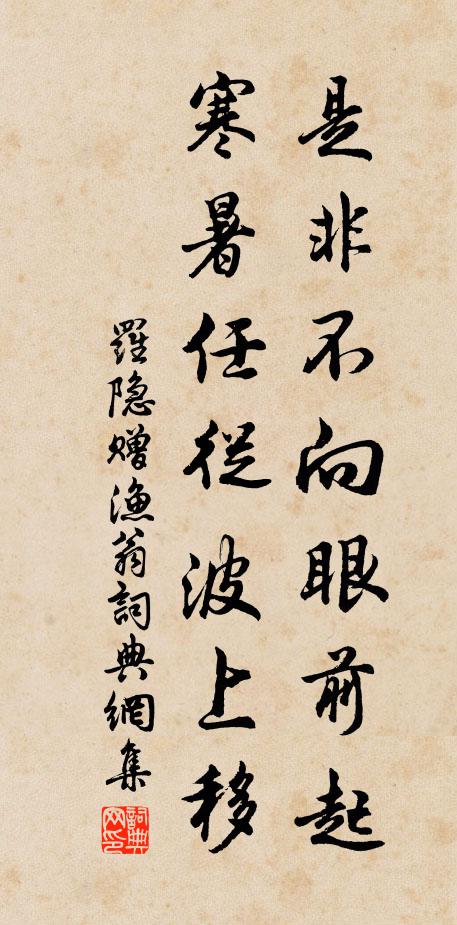 是非不向眼前起
寒暑任從波上移
羅隱贈漁翁詞典網集
詞典網印